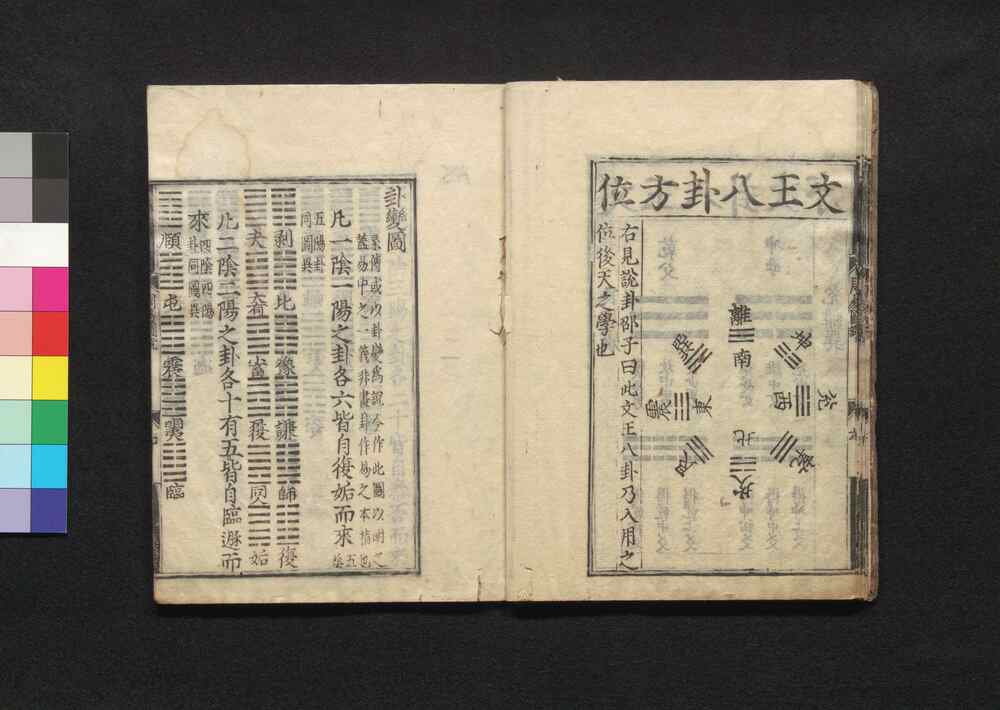 文王八卦方位
離
南
坤
兌
西
乾
坎
北
艮
震
東
巽
右見說卦邵子曰此文王八卦乃入用之
位後天之學也
卦變圖
彖傳或以卦變爲說今作此圖以明之
蓋易中之一義非畫卦作易之本指也
凡一陰一陽之卦各六皆自復姤而來
五陰
五陽卦
同圖異
剝 比 豫 謙 師 復
夬 大有 小畜 履 同人 姤
凡二陰二陽之卦各十有五皆自臨遯而
來
四陰四陽
卦同圖異
頤 屯 震 臨